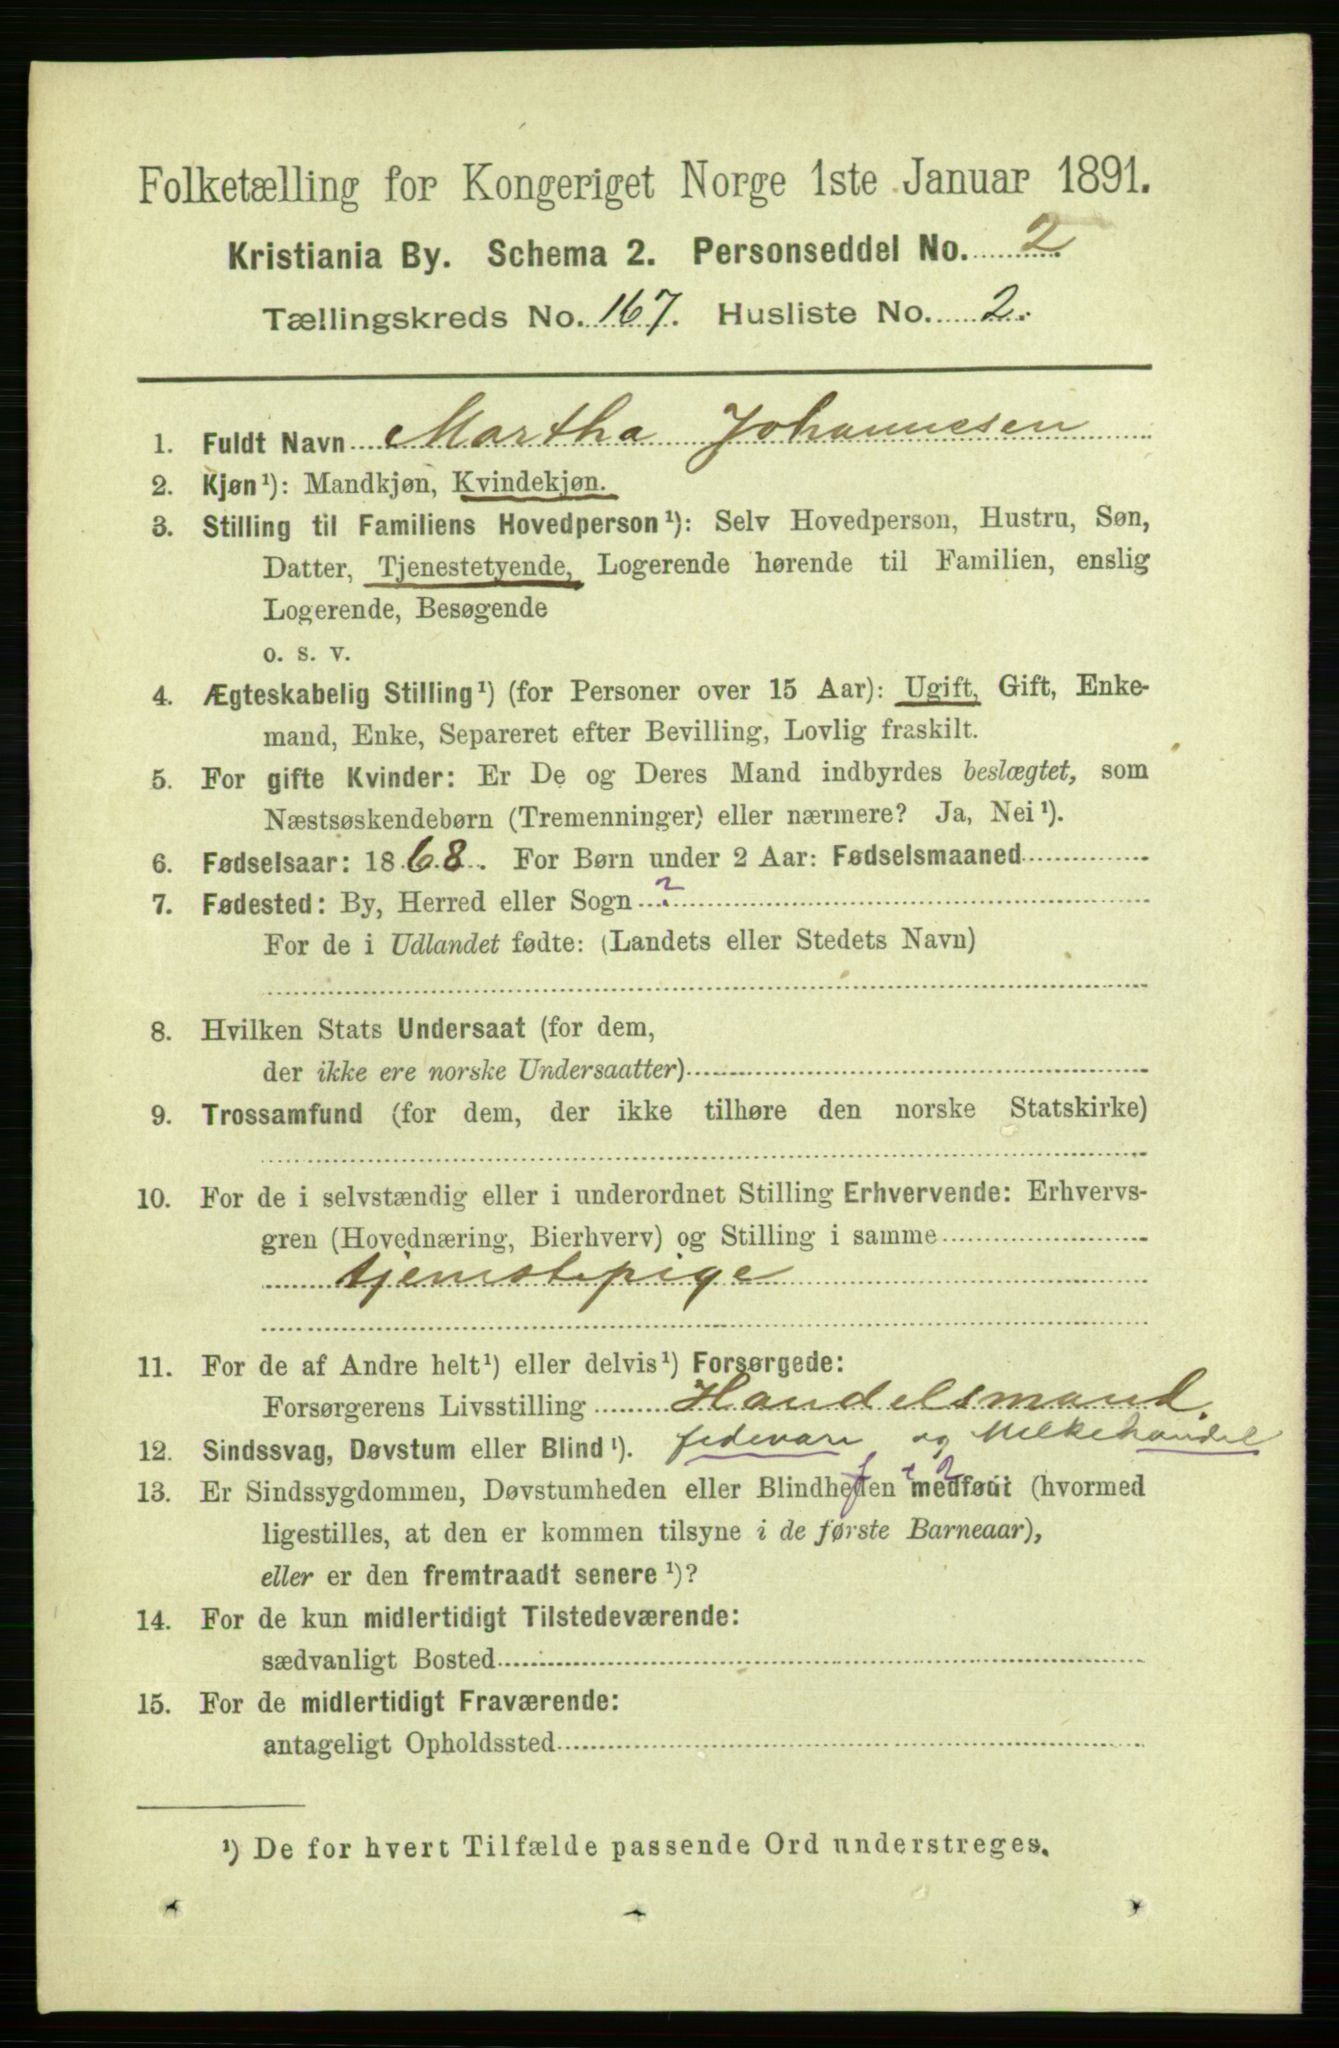 Folketælling for Kongeriget Norge 1ste Januar 1891.
Kristiania By. Schema 2. Personseddel No. 2.
Tællingskreds No. 167. Husliste No. 2.
1. Fuldt Navn Martha Johannesen
2. Kjøn¹): Mandkjøn, Kvindekjøn.
3. Stilling til Familiens Hovedperson¹): Selv Hovedperson, Hustru, Søn,
Datter, Tjenestetyende, Logerende hørende til Familien, enslig
Logerende, Besøgende
o. s. v.
4. Ægteskabelig Stilling¹) (for Personer over 15 Aar): Ugift, Gift, Enke-
mand, Enke, Separeret efter Bevilling, Lovlig fraskilt.
5. For gifte Kvinder: Er De og Deres Mand indbyrdes beslægtet, som
Næstsøskendebørn (Tremenninger) eller nærmere? Ja, Nei¹).
6. Fødselsaar: 1868. For Børn under 2 Aar: Fødselsmaaned
7. Fødested: By, Herred eller Sogn ?
For de i Udlandet fødte: (Landets eller Stedets Navn)
8. Hvilken Stats Undersaat (for dem,
der ikke ere norske Undersaatter)
9. Trossamfund (for dem, der ikke tilhøre den norske Statskirke)
10. For de i selvstændig eller i underordnet Stilling Erhvervende: Erhvervs-
gren (Hovednæring, Bierhverv) og Stilling i samme
tjenstepige
11. For de af Andre helt¹) eller delvis¹) Forsørgede:
Forsørgerens Livsstilling Handelsmand.
12. Sindssvag, Døvstum eller Blind¹). fedevare og Melkehandel
13. Er Sindssygdommen, Døvstumheden eller Blindheden medfødt (hvormed
ligestilles, at den er kommen tilsyne i de første Barneaar),
eller er den fremtraadt senere¹)?
14. For de kun midlertidigt Tilstedeværende:
sædvanligt Bosted
15. For de midlertidigt Fraværende:
antageligt Opholdssted
¹) De for hvert Tilfælde passende Ord understreges.